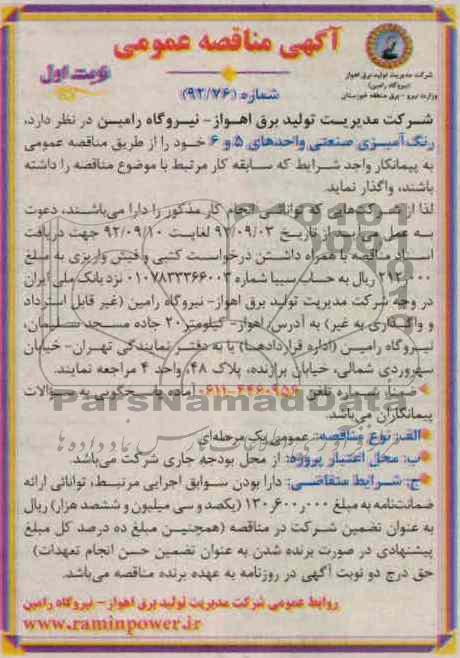 آگهی مناقصه عمومی
شرکت مدیریت تولید برق اهواز
(نیروگاه رامین)
وزارت نیرو - برق منطقه خوزستان
نوبت اول
شماره (۹۲/۷۶)
شرکت مدیریت تولید برق اهواز- نیروگاه رامین در نظر دارد،
رنگ‌آمیزی صنعتی واحدهای ۵ و ۶ خود را از طریق مناقصه عمومی
به پیمانکار واجد شرایط که سابقه کار مرتبط با موضوع مناقصه را داشته
باشند، واگذار نماید.
لذا از شرکت‌هایی که توانائی انجام کار مذکور را دارا می‌باشند، دعوت
به عمل می‌آید از تاریخ ۹۲/۰۹/۰۳ لغایت ۹۲/۰۹/۱۰ جهت دریافت
اسناد مناقصه با همراه داشتن درخواست کتبی و فیش واریزی به مبلغ
۲۱۲,۰۰۰ ریال به حساب سیبا شماره ۰۱۰۷۸۳۳۳۶۶۰۰۳ نزد بانک ملی ایران
در وجه شرکت مدیریت تولید برق اهواز- نیروگاه رامین (غیر قابل استرداد
و واگذاری به غیر) به آدرس/ اهواز- کیلومتر ۲۰ جاده مسجد سلیمان،
نیروگاه رامین (اداره قراردادها) یا به دفتر نمایندگی تهران- خیابان
سهروردی شمالی، خیابان برازنده، پلاک ۴۸، واحد ۴ مراجعه نمایند.
ضمناً شماره تلفن ۴۴۶۰۹۵۶-۰۶۱۱ آماده پاسخگویی به سوالات
پیمانکاران می‌باشد.
الف: نوع مناقصه: عمومی یک مرحله‌ای
ب: محل اعتبار پروژه: از محل بودجه جاری شرکت می‌باشد.
ج: شرایط متقاضی: دارا بودن سوابق اجرایی مرتبط، توانائی ارائه
ضمانت‌نامه به مبلغ ۱۳۰,۶۰۰,۰۰۰ (یکصد و سی میلیون و ششصد هزار) ریال
به عنوان تضمین شرکت در مناقصه (همچنین مبلغ ده درصد کل مبلغ
پیشنهادی در صورت برنده شدن به عنوان تضمین حسن انجام تعهدات)
حق درج دو نوبت آگهی در روزنامه به عهده برنده مناقصه می‌باشد.
روابط عمومی شرکت مدیریت تولید برق اهواز- نیروگاه رامین
www.raminpower.ir
ParsNamadData